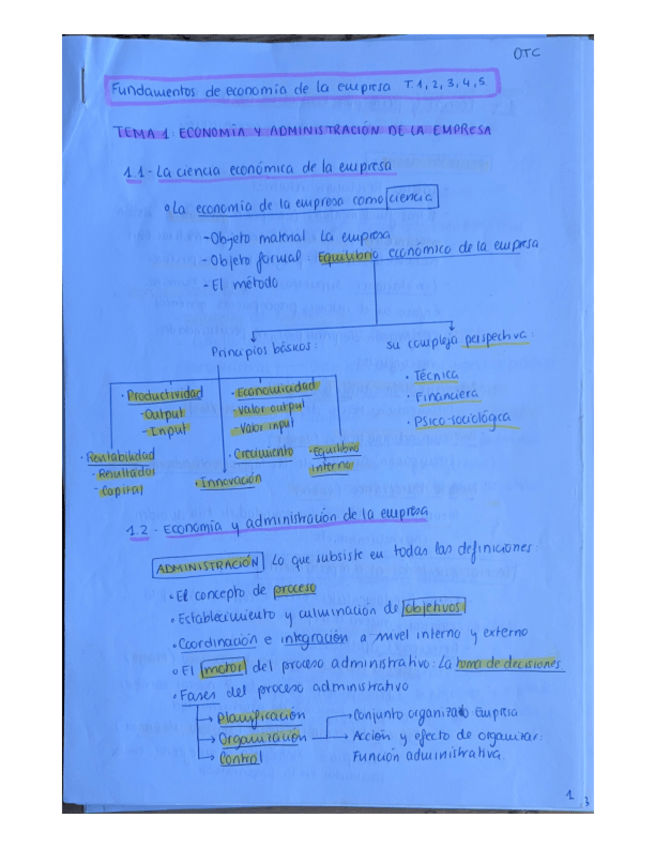 OTC
Fundamentos de economía de la empresa T. 1, 2, 3, 4, 5
TEMA 1: ECONOMÍA Y ADMINISTRACIÓN DE LA EMPRESA
1.1 - La ciencia económica de la empresa
La economía de la empresa como ciencia
- Objeto material La empresa
- Objeto formal: Equilibrio económico de la empresa
- El método
Principios básicos:
su compleja perspectiva:
· Técnica
· Financiera
· Psico-sociológica
· Productividad
- Output
- Input
· Economicidad
- Valor output
- Valor input
· Rentabilidad
· Resultados
- Capital
· Crecimiento
· Equilibrio
interno
· Innovación
1.2 - Economía y administración de la empresa
ADMINISTRACIÓN Lo que subsiste en todas las definiciones:
· El concepto de proceso
· Establecimiento y culminación de objetivos
· Coordinación e integración a nivel interno y externo
· El motor del proceso administrativo: La toma de decisiones
· Fases del proceso administrativo
→ Planificación
→ Organización
→ Control
→ Conjunto organizado Empresa
→ Acción y efecto de organizar:
Función administrativa
1
3